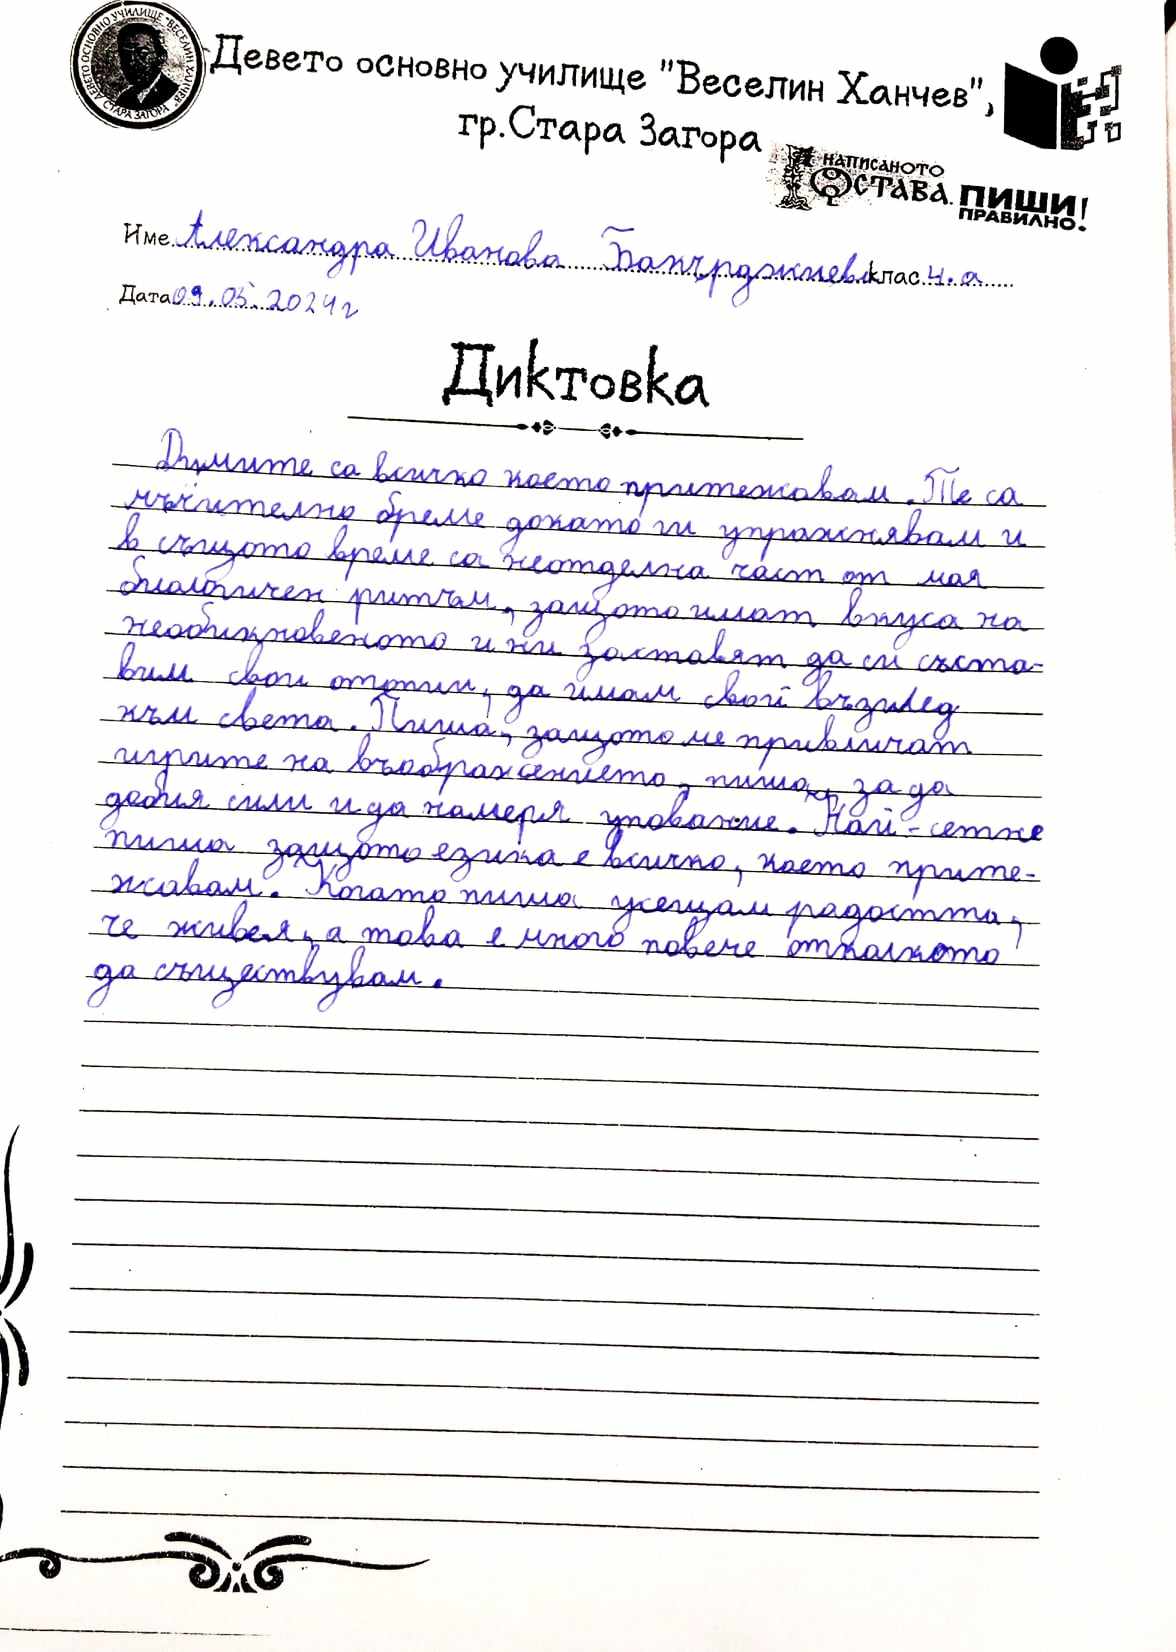 ДЕВЕТО ОСНОВНО УЧИЛИЩЕ "ВЕСЕЛИН ХАНЧЕВ"
СТАРА ЗАГОРА
Девето основно училище "Веселин Ханчев",
гр.Стара Загора
НАПИСАНОТО
ОСТАВА. ПИШИ
ПРАВИЛНО!
Име Александра Иванова клас 4.а
Дата 09.05.2024г
Диктовка
Думите са всичко което притежавам. Те са
мъчително бреме докато ги упражнявам и
в същото време са неотделна част от мая
биологичен ритъм, защото имат вкуса на
необикновеното и ни заставят да си съста-
вим свои отопии, да имам свой възглед
към света. Пиша, защото ме привличат
игрите на въображението, пиша, за да
добия сили и да намеря упование. Най-сетне
пиша защото езика е всичко, което прите-
жавам. Когато пиша усещам радостта,
че живея, а това е много повече отколкото
да съществувам.